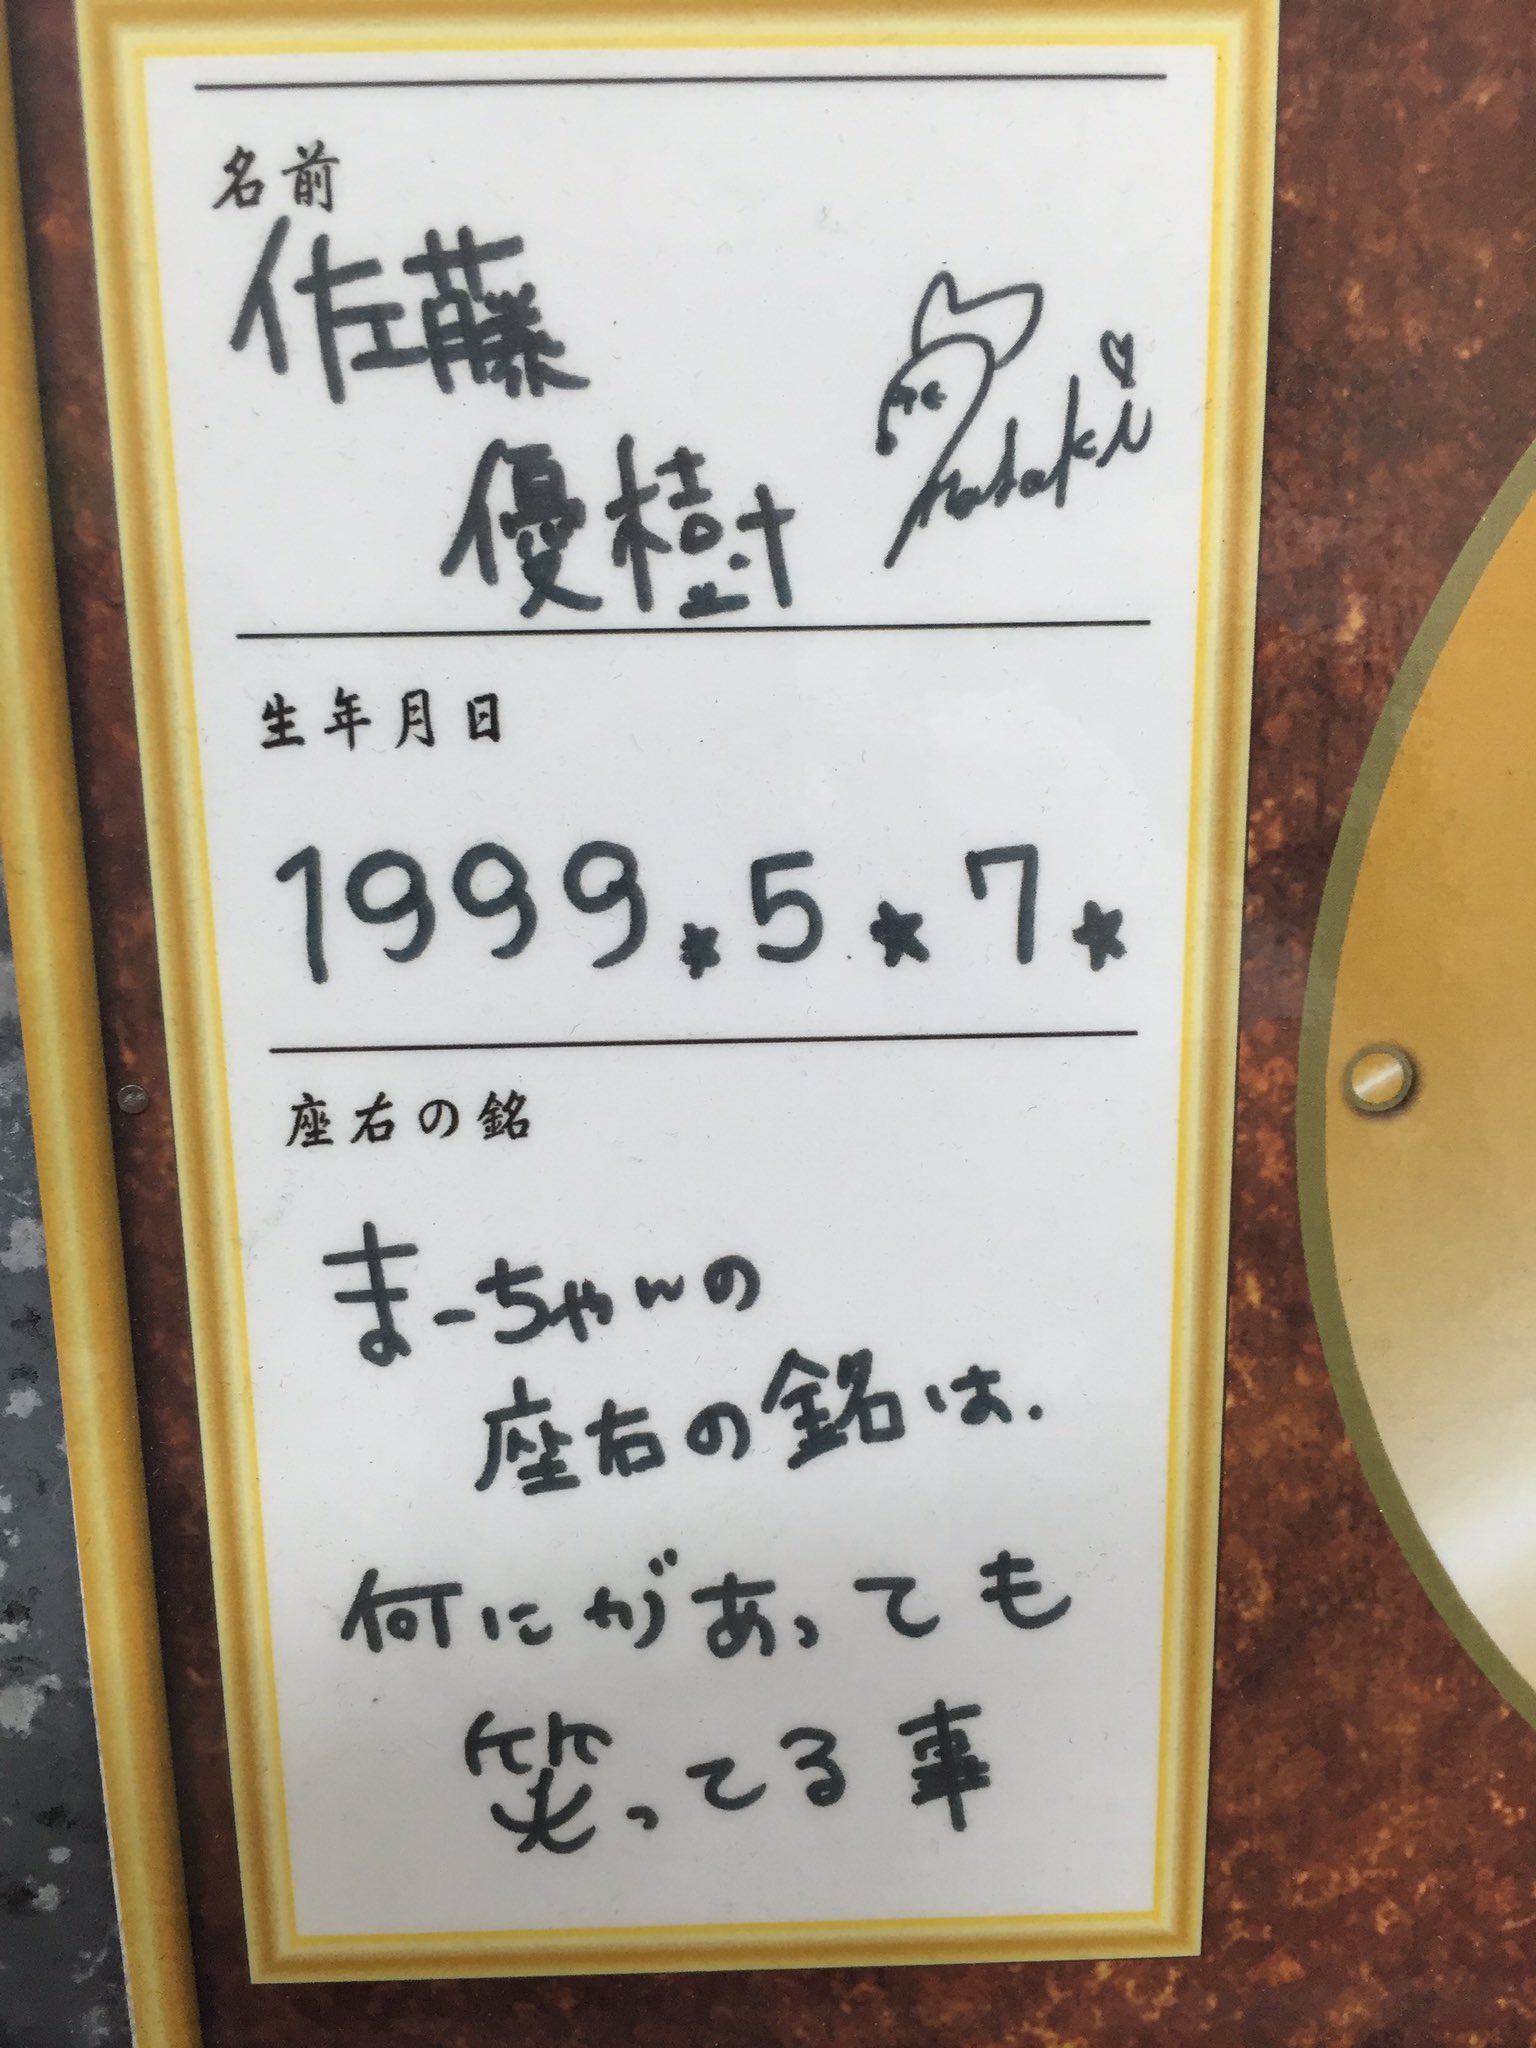 名前
佐藤
優樹
Masaki
生年月日
1999.5.7.
座右の銘
まーちゃんの
座右の銘は.
何にがあっても
笑ってる事